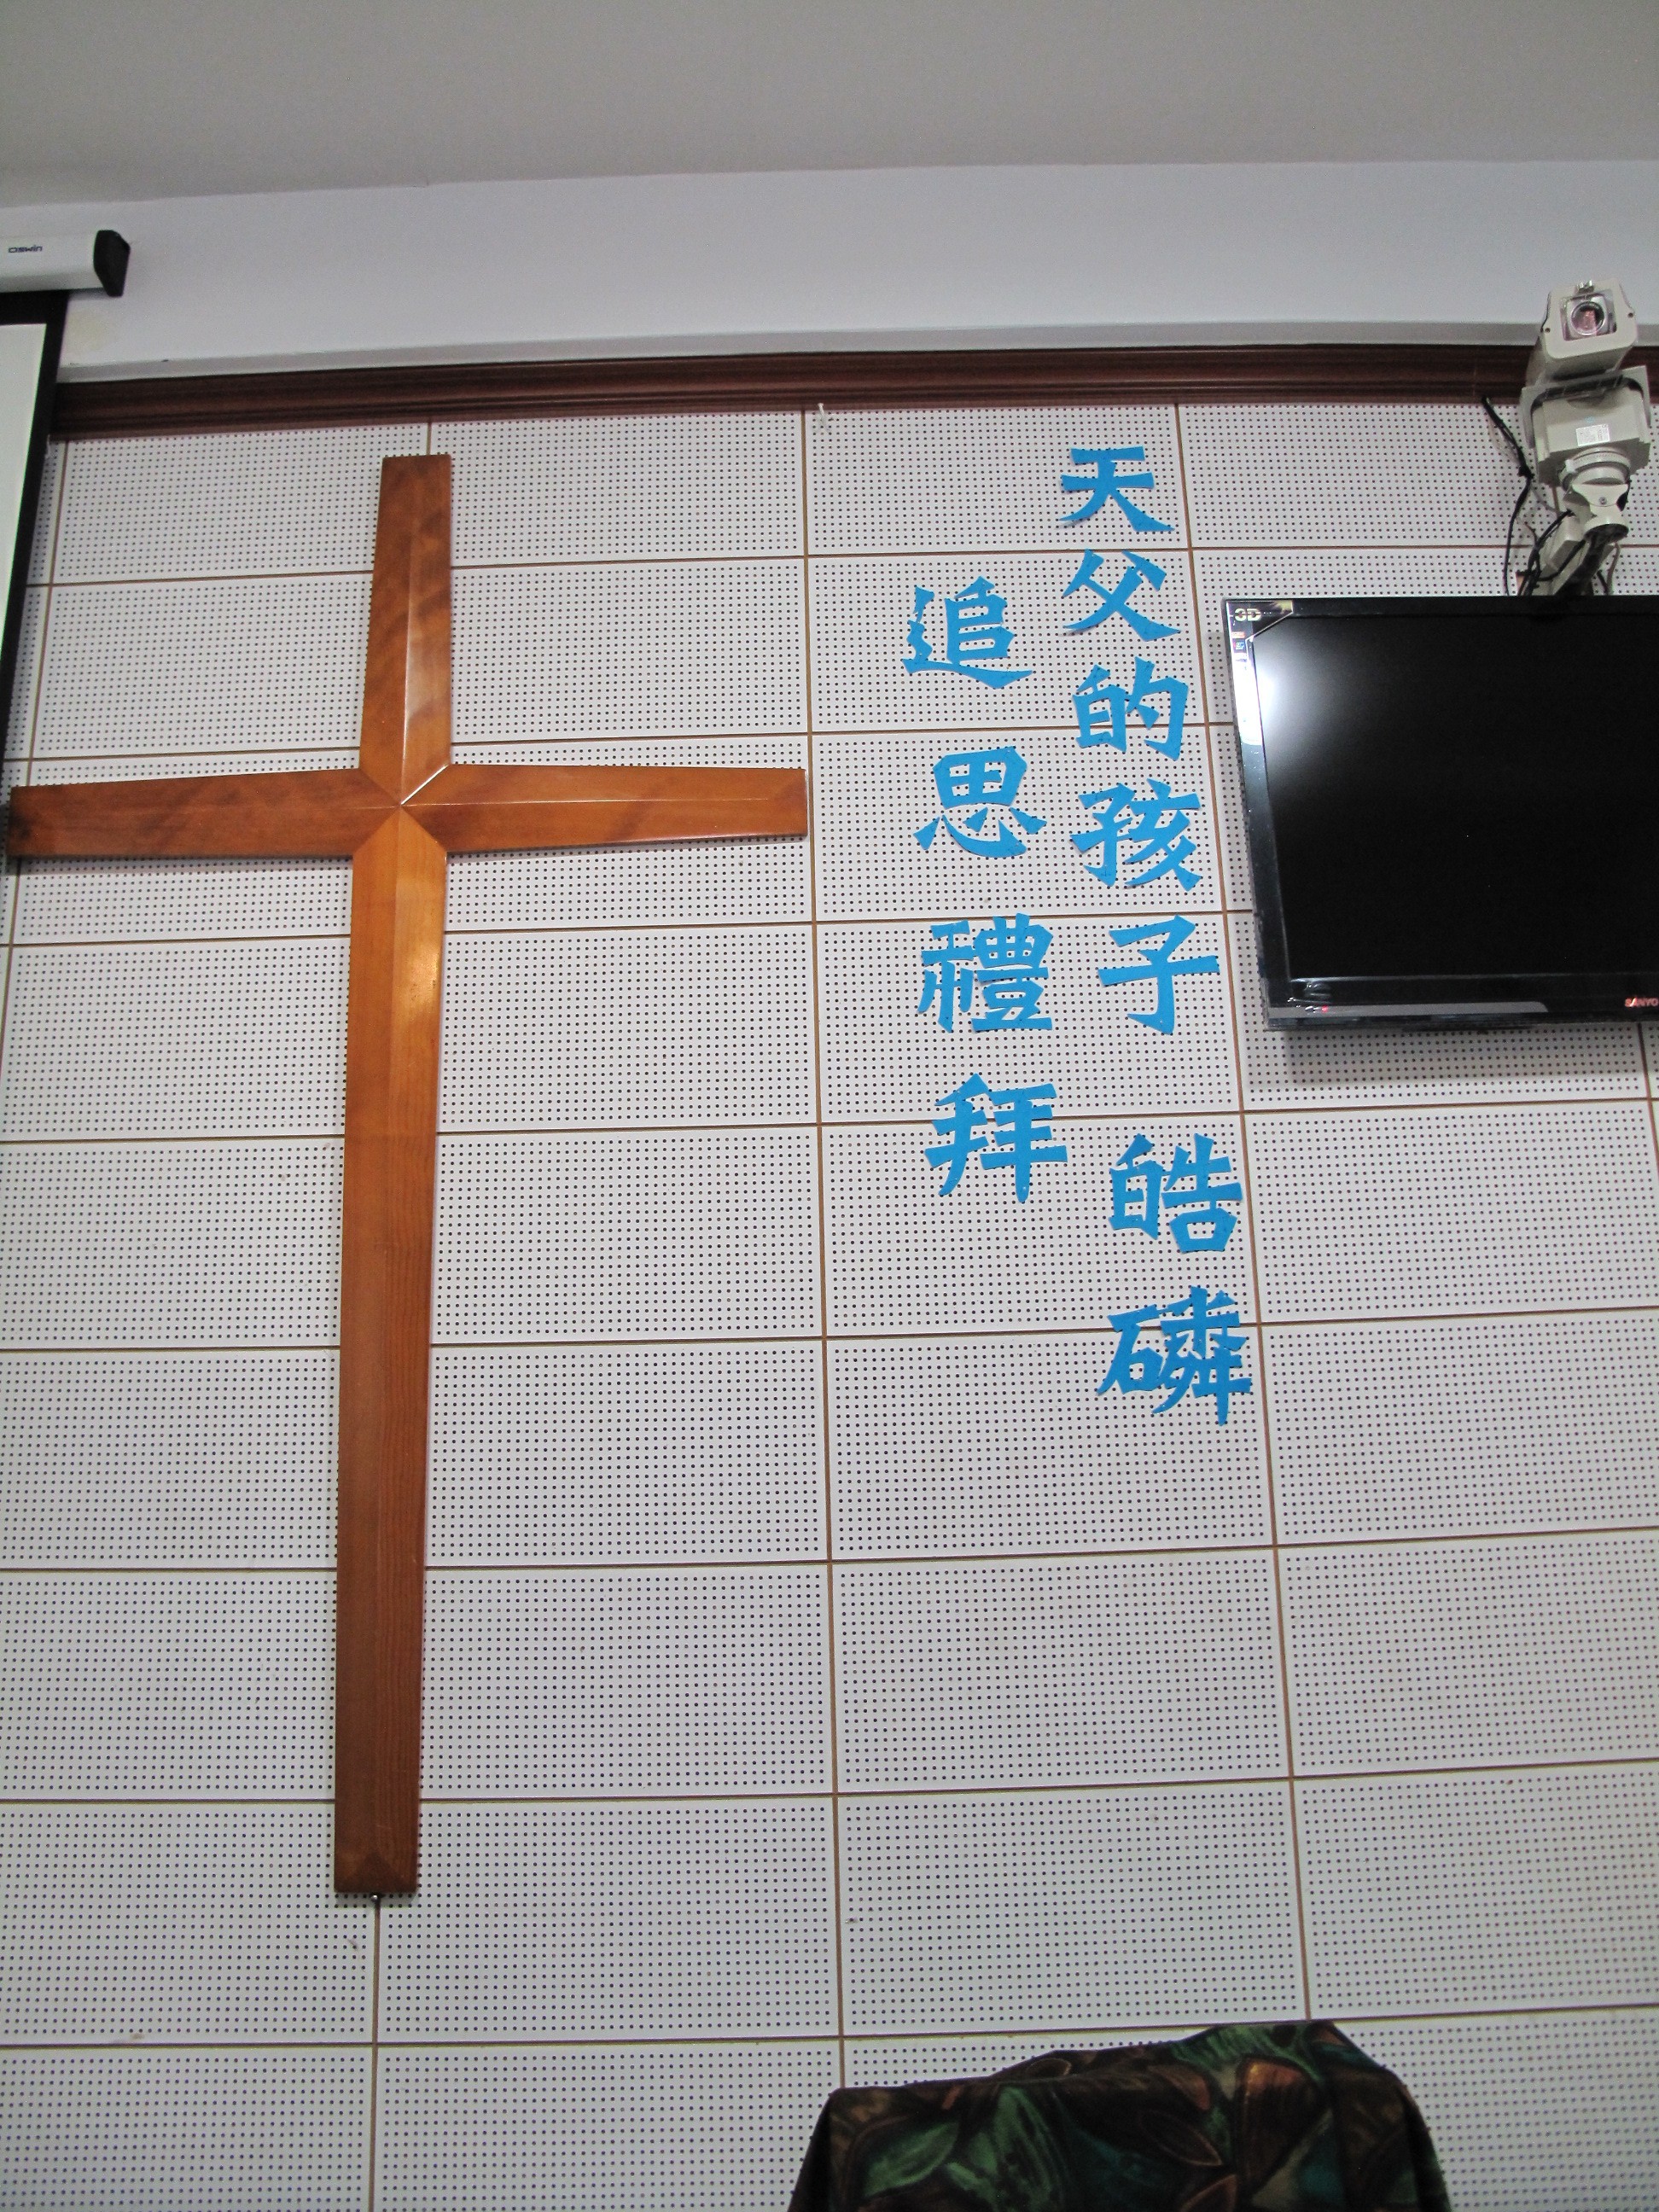 天父的孩子 皓磷
追思禮拜
OSWIN
3D
SANYO